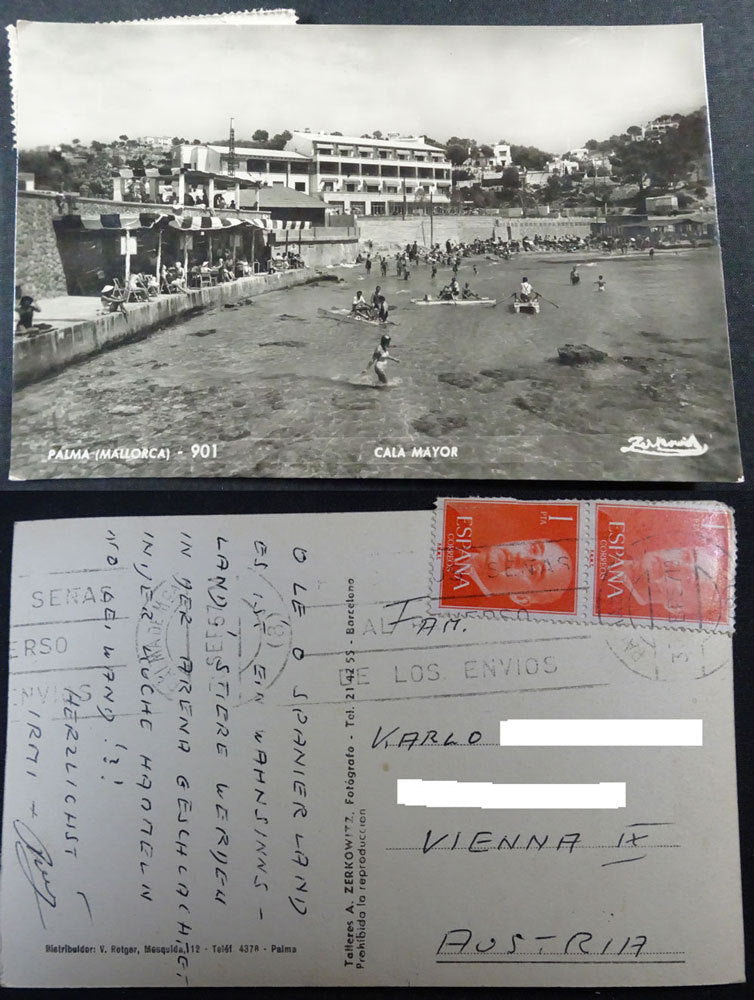 PALMA (MALLORCA) - 901
CALA MAYOR
Zerkowitz
O LE O SPANIERLAND
ES IST EIN WAHNSINNS-
LAND, STIERE WERDEN
IN DER ARENA GESCHLACHTET
IN DER KÜCHE HAMMELN
NO BEI WAND !?!
HERZLICHST
IRMI +
Distribuidor: V. Rotger, Mesquida, 12 - Teléf 4378 - Palma
Talleres A. ZERKOWITZ, Fotógrafo - Tel. 21 42 55 - Barcelona
Prohibida la reproducción
1
PTA
ESPAÑA
CORREOS
F.N.M.T.
1
ESPAÑA
CORREOS
F.N.M.T.
SEÑAS
AL
DE LOS ENVIOS
SEÑAS
ERSO
ENVIOS
SEP
FAM.
KARLO
VIENNA IX
AUSTRIA